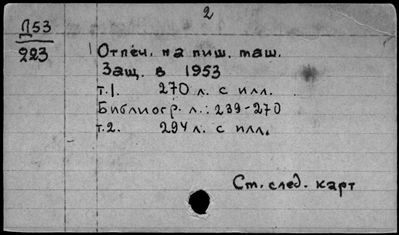 2
Д53
223
Отпеч. на пиш. маш.
Защ. в 1953
т.1. 270 л. с илл.
Библиогр. л.: 239-270
т.2. 294 л. с илл.
См. след. карт